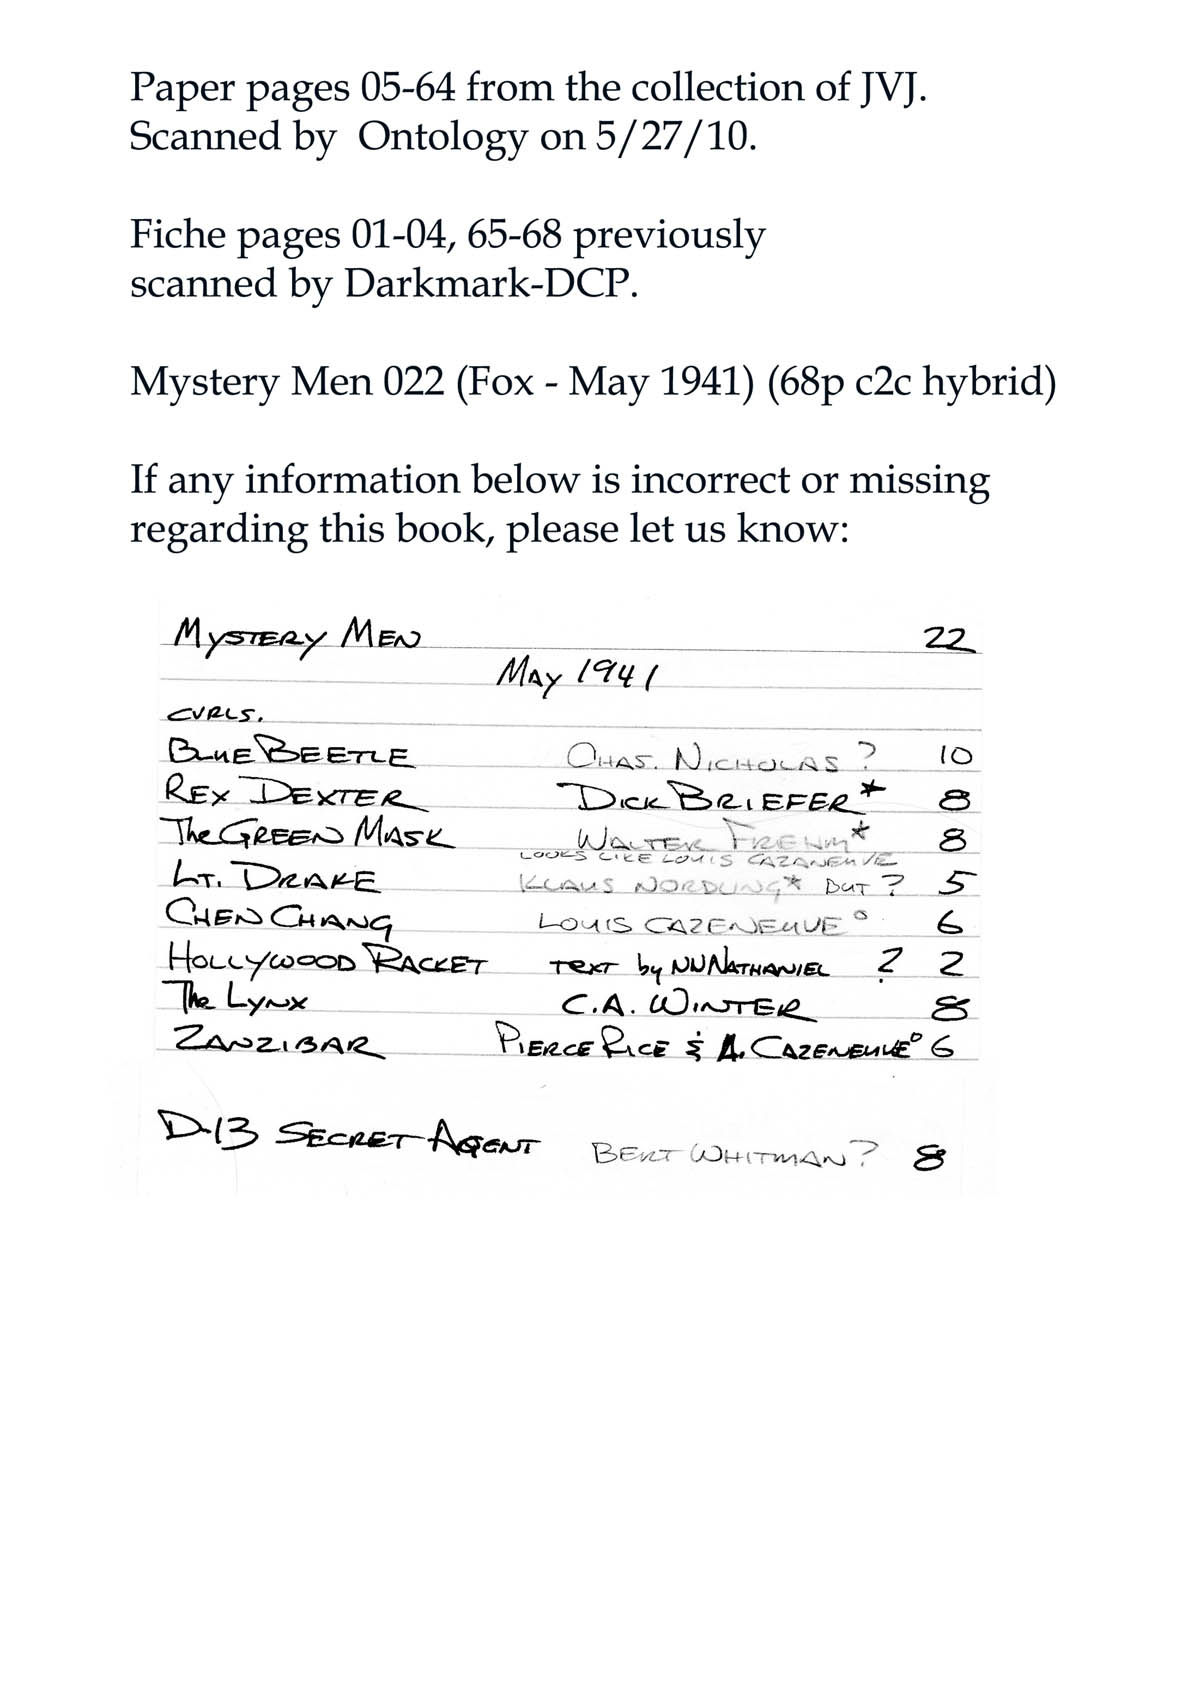 Paper pages 05-64 from the collection of JVJ.
Scanned by Ontology on 5/27/10.
Fiche pages 01-04, 65-68 previously
scanned by Darkmark-DCP.
Mystery Men 022 (Fox - May 1941) (68p c2c hybrid)
If any information below is incorrect or missing
regarding this book, please let us know:
MYSTERY MEN 22
MAY 1941
CVRLS.
BLUE BEETLE CHAS. NICHOLAS ? 10
REX DEXTER DICK BRIEFER* 8
The GREEN MASK WALTER FREHM* 8
LOOKS LIKE LOUIS CAZANEUVE
LT. DRAKE KLAUS NORDLING* BUT ? 5
CHEN CHANG LOUIS CAZENEUVE° 6
HOLLYWOOD RACKET TEXT by NW NATHANIEL ? 2
The LYNX C.A. WINTER 8
ZANZIBAR PIERCE RICE & A. CAZENEUVE° 6
D-13 SECRET AGENT BERT WHITMAN? 8